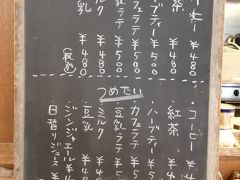 ーヒー ¥480
茶 ¥480
ブティー ¥500
フェラテ ¥500
乳ラテ ¥500
ク ¥480
乳 ¥480
(税込)
つめたい
・コーヒー ¥4
・紅茶 ¥4
・ハーブティー ¥
・カフェラテ ¥5
・豆乳ラテ ¥5
・ミルク ¥4
・豆乳 ¥4
・ジンジャエール ¥4
・日替りジュース ¥